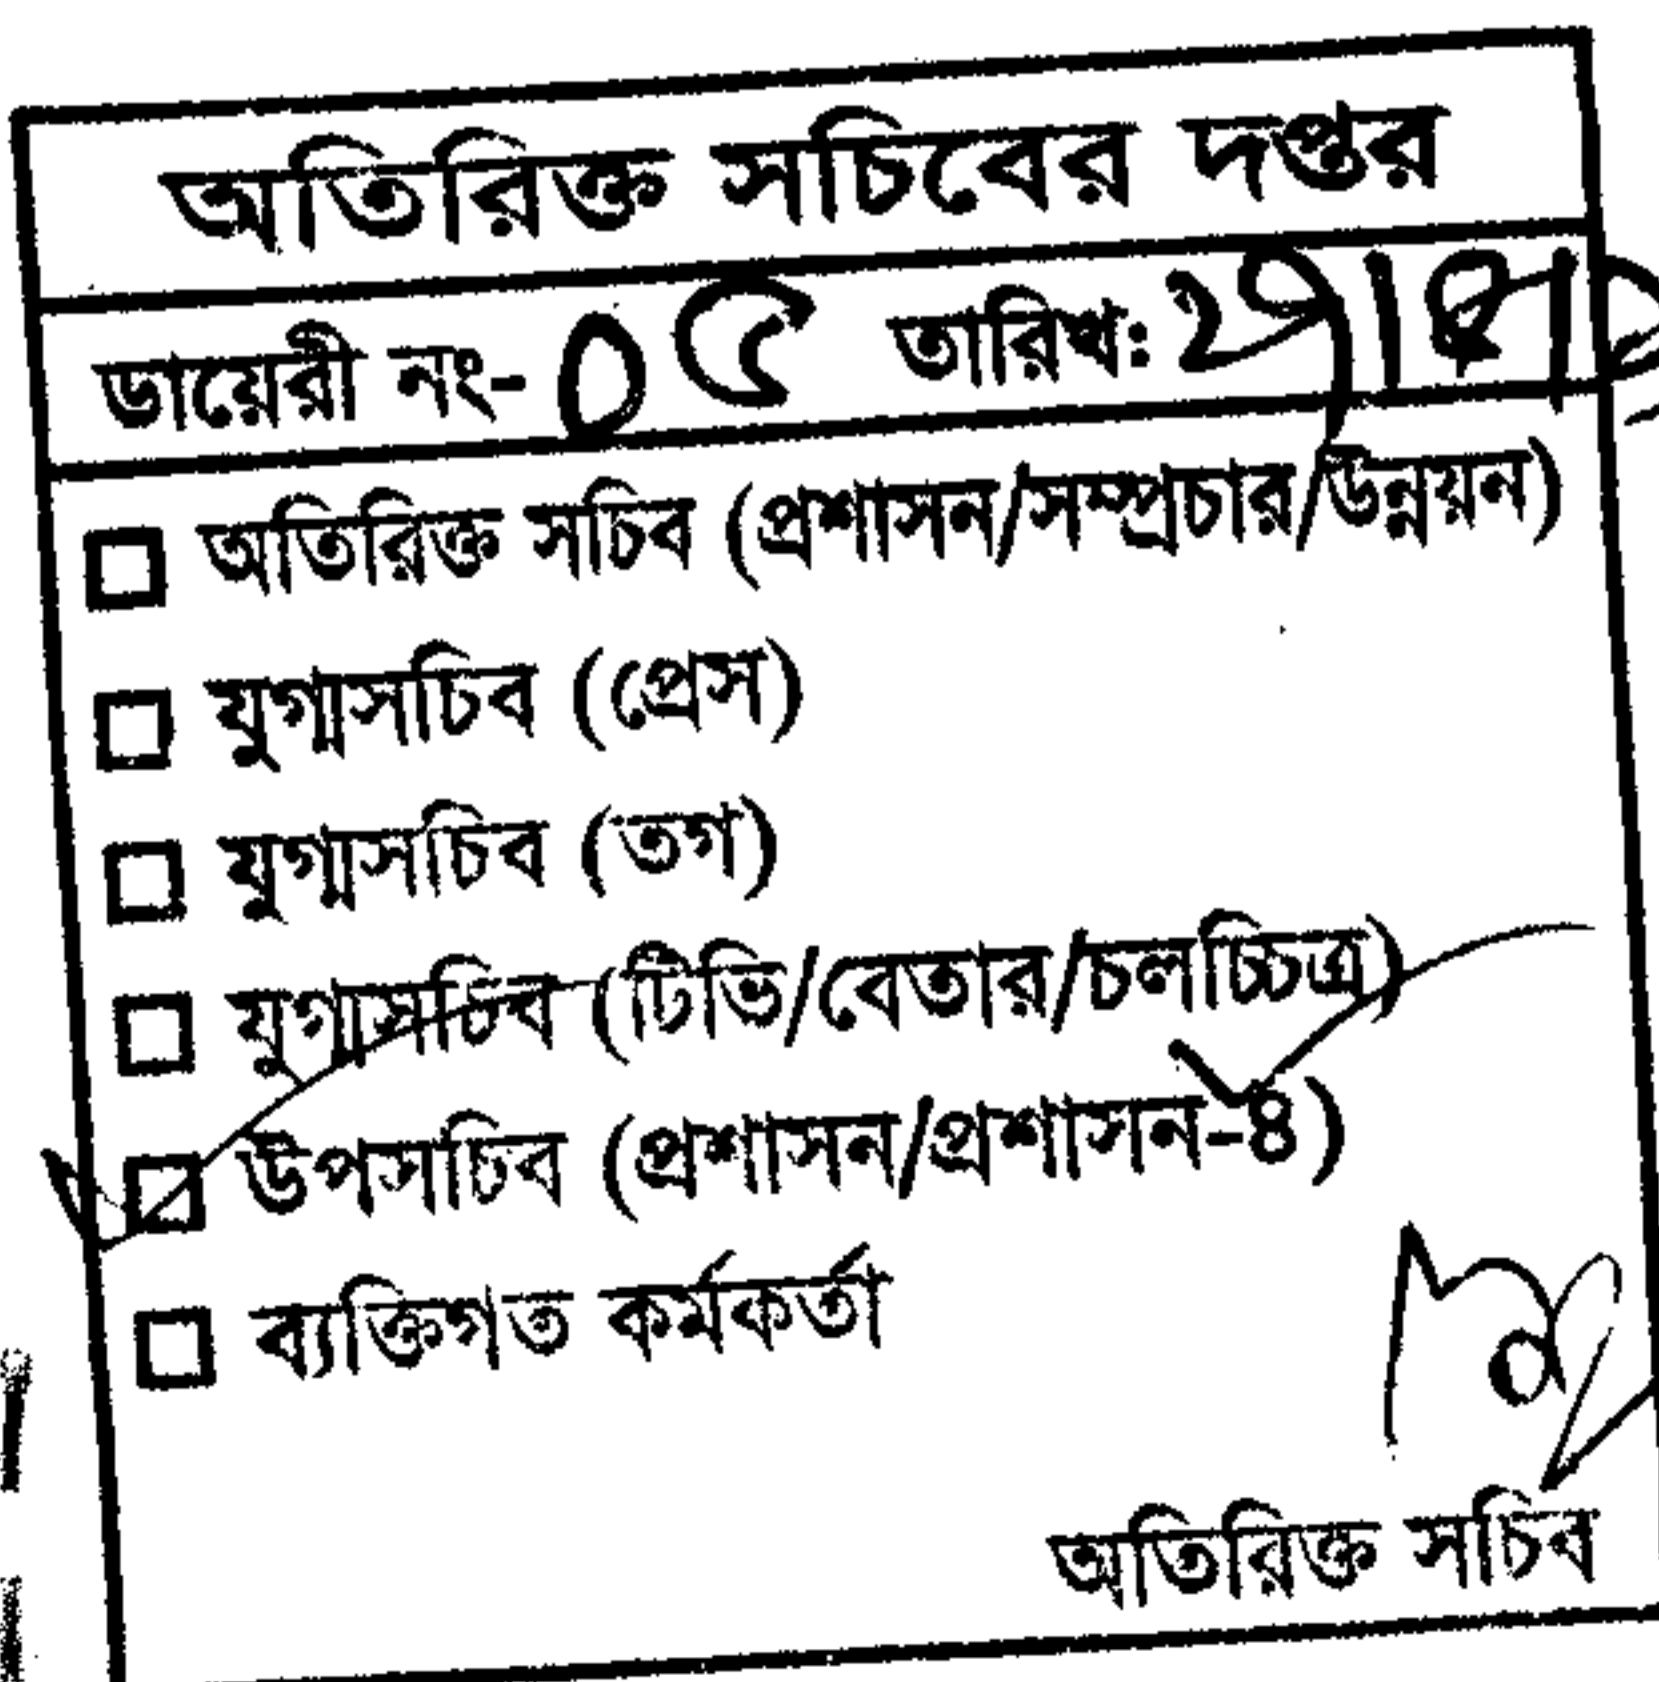 অতিরিক্ত সচিবের দপ্তর
ডায়েরী নং- ০৫ তারিখ:
অতিরিক্ত সচিব (প্রশাসন/সম্প্রচার/উন্নয়ন)
যুগ্মসচিব (প্রেস)
যুগ্মসচিব (তগ)
যুগ্মসচিব (টিভি/বেতার/চলচ্চিত্র)
উপসচিব (প্রশাসন/প্রশাসন-৪)
ব্যক্তিগত কর্মকর্তা
অতিরিক্ত সচিব